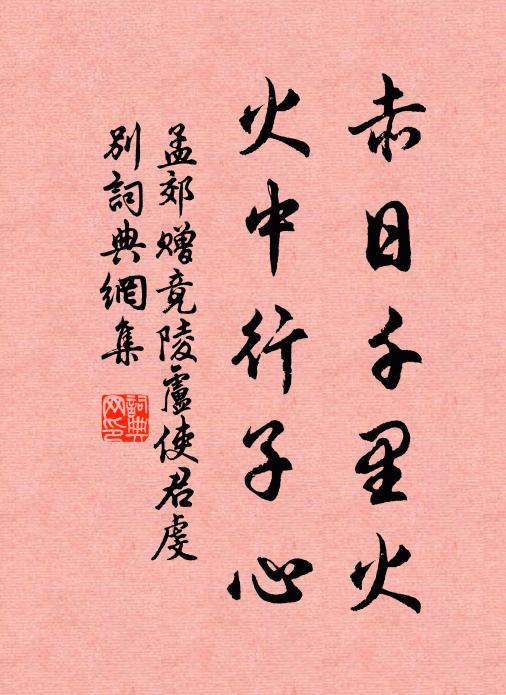 赤日千里火
火中行子心
孟郊贈竟陵盧使君虔
別詞典網集
詞典
网印